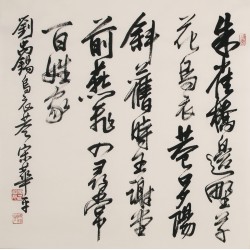 朱雀橋邊野草
花烏衣巷口夕陽
斜舊時王謝堂
前燕飛入尋常
百姓家
劉禹錫烏衣巷 宋華平